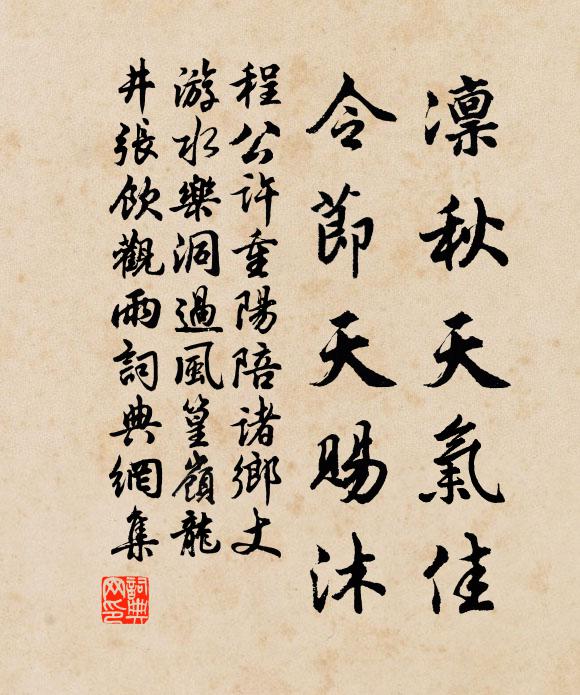 凜秋天氣佳
令節天賜沐
程公許重陽陪諸鄉丈
游水樂洞過風篁嶺龍
井張飲觀雨詞典網集
詞典
网印